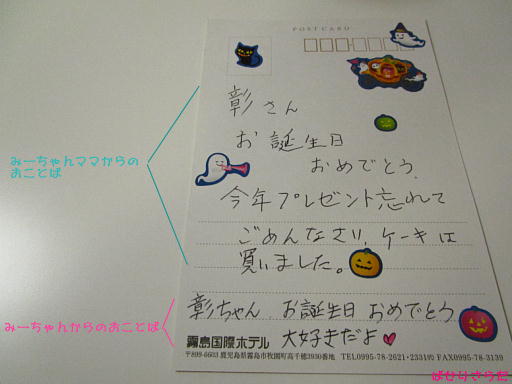 POST CARD
彰さん
お誕生日
おめでとう.
今年プレゼント忘れて
ごめんなさい,ケーキは
買いました。
みーちゃんママからの
おことば
彰ちゃん お誕生日 おめでとう
大好きだよ
みーちゃんからのおことば
霧島国際ホテル
〒899-6603 鹿児島県霧島市牧園町高千穂3930番地 TEL0995-78-2621・2331㈹ FAX0995-78-3139